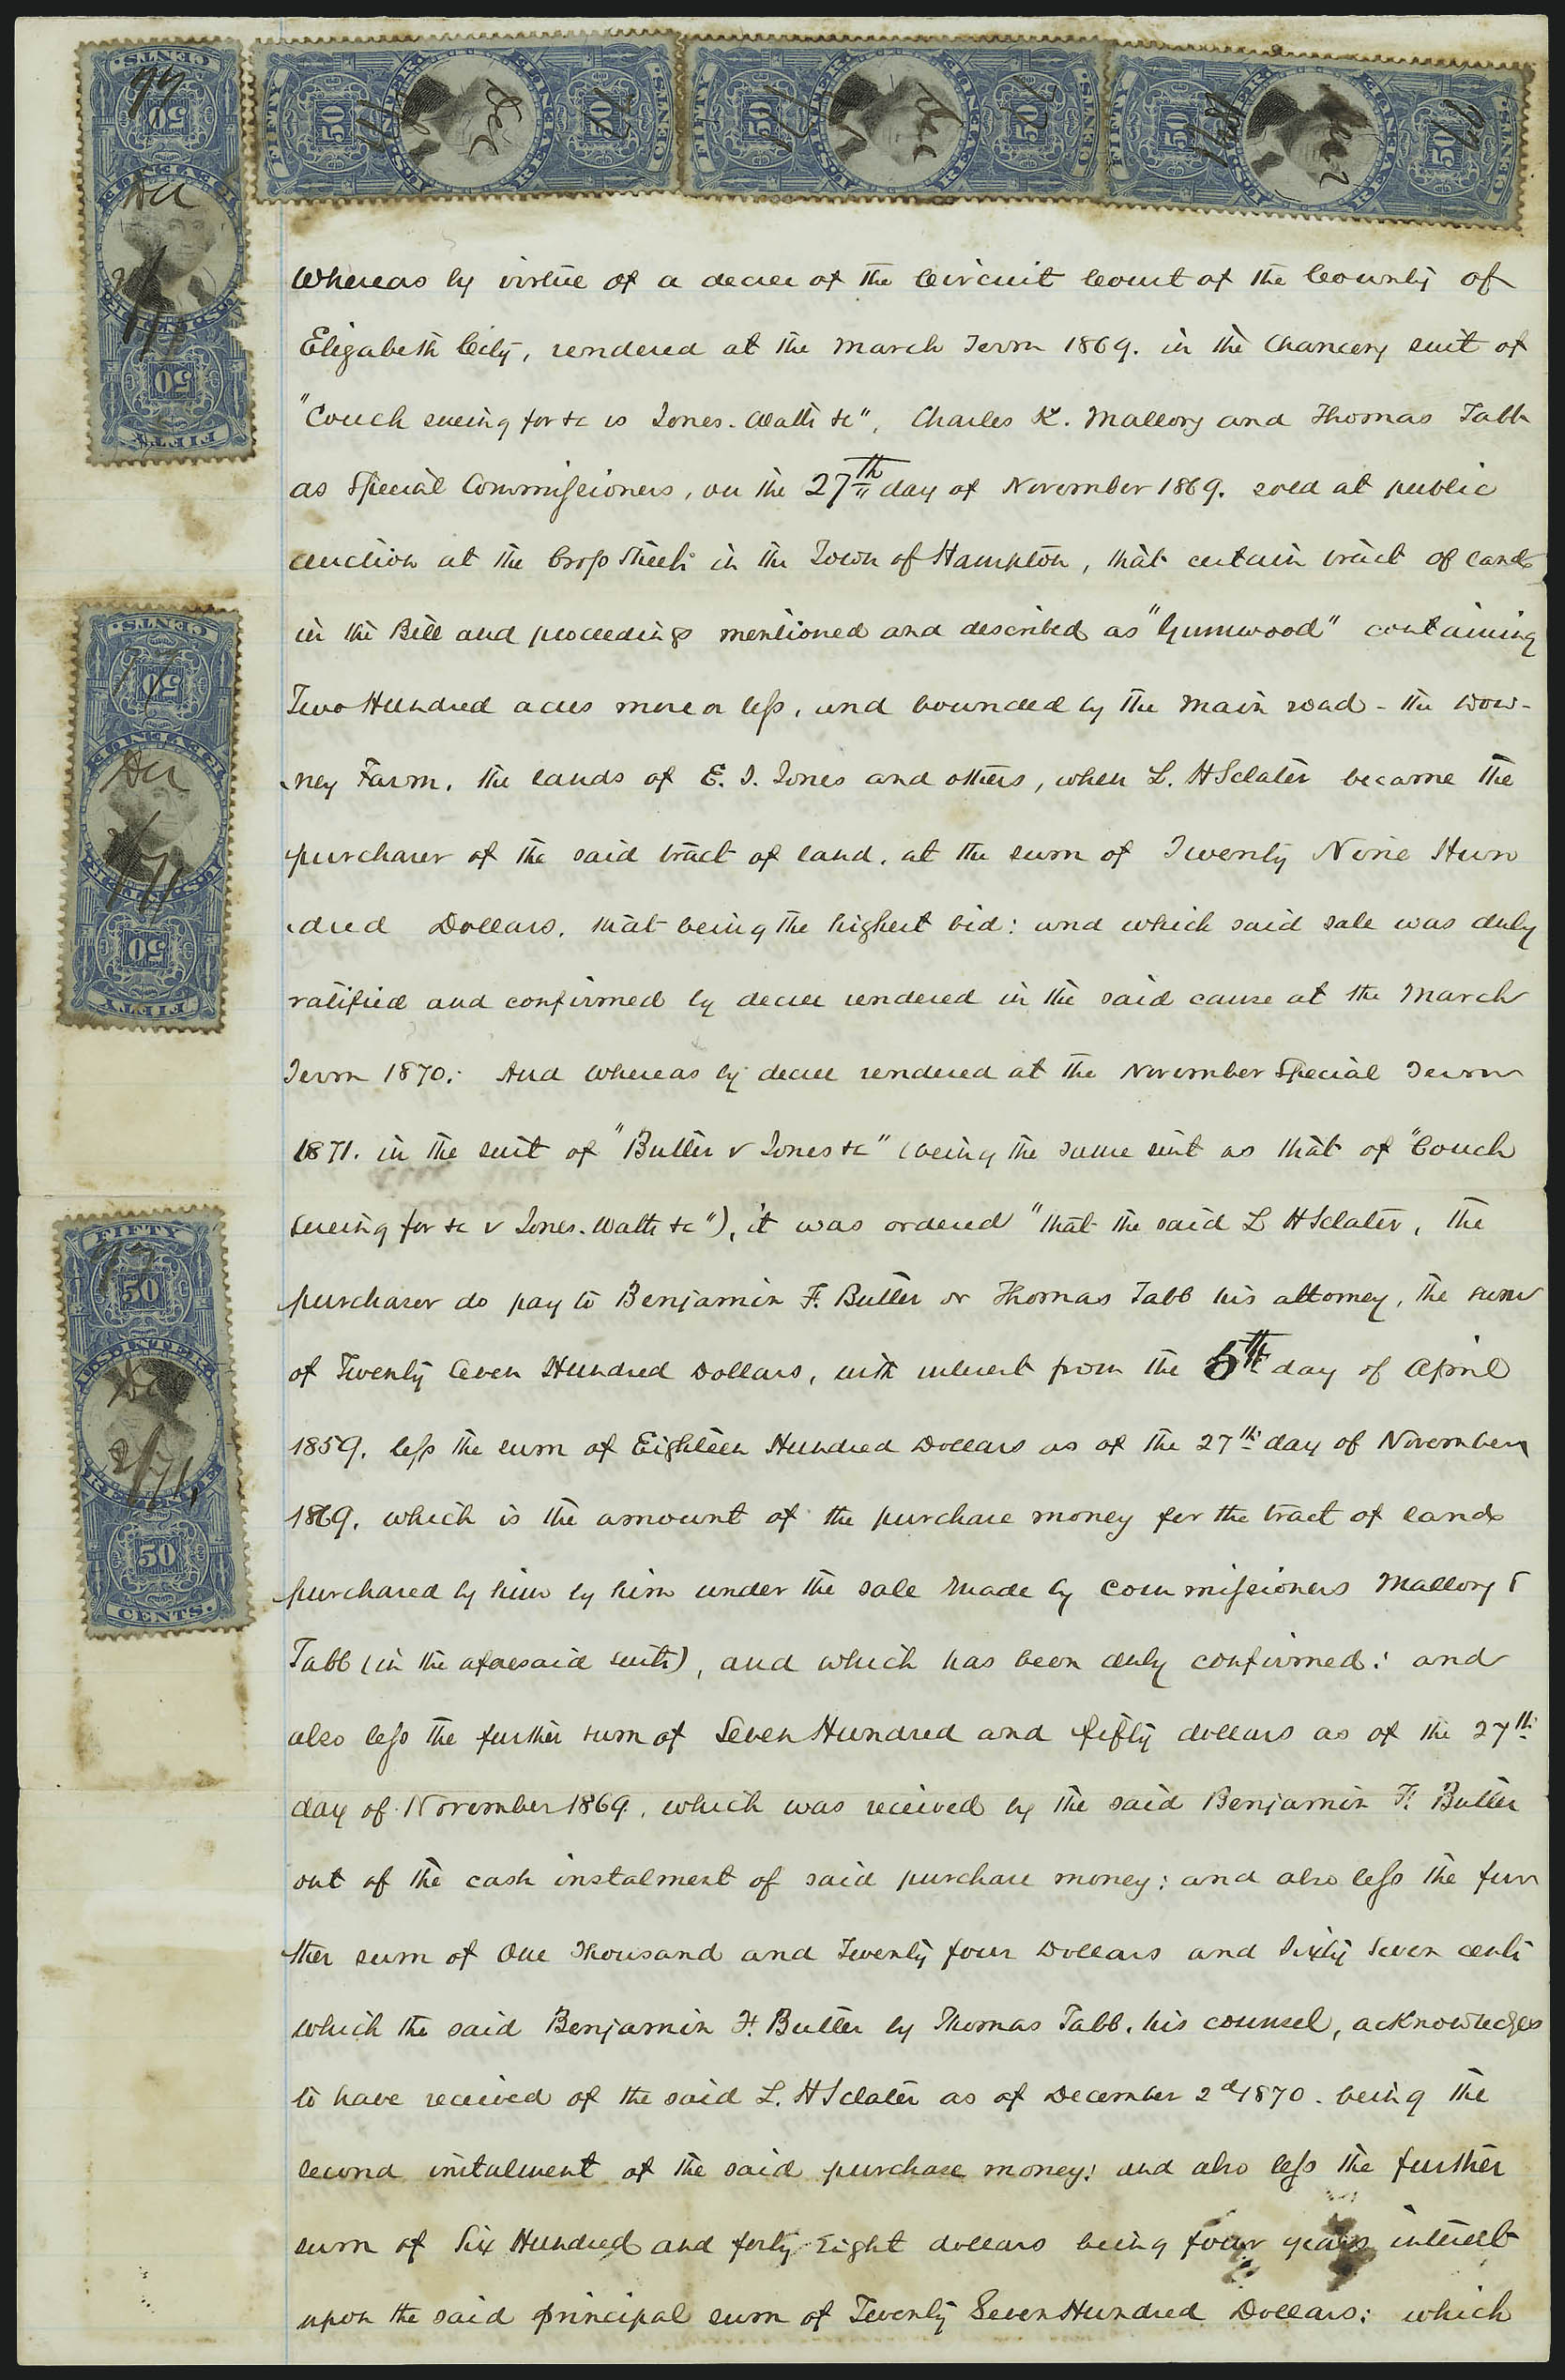 Whereas by virtue of a decree of the Circuit Court of the County of
Elizabeth City, rendered at the March Term 1869. in the Chancery suit of
"Couch sueing for &c vs Jones. Watts &c", Charles K. Mallory and Thomas Tabb
as Special Commissioners, on the 27th day of November 1869. sold at public
auction at the Cross Streets in the Town of Hampton, that certain tract of land
in the Bill and proceedings mentioned and described as "Gumwood" containing
Two Hundred acres more or less, and bounded by the main road - the Dow-
ney Farm, the lands of E. I. Jones and others, when L. H Sclater became the
purchaser of the said tract of land, at the sum of Twenty Nine Hun
dred Dollars, that being the highest bid: and which said sale was duly
ratified and confirmed by decree rendered in the said cause at the March
Term 1870: And whereas by decree rendered at the November Special Term
1871. in the suit of "Butler v Jones &c" (being the same suit as that of "Couch
sueing for &c v Jones. Watts &c"), it was ordered "that the said L H Sclater, the
purchaser do pay to Benjamin F. Butler or Thomas Tabb his attorney, the sum
of Twenty Seven Hundred Dollars, with interest from the 5th day of April
1859. less the sum of Eighteen Hundred Dollars as of the 27th day of November
1869. which is the amount of the purchase money for the tract of land
purchased by him by him under the sale made by Commissioners Mallory &
Tabb (in the aforesaid suit), and which has been duly confirmed: and
also less the further sum of Seven Hundred and fifty dollars as of the 27th
day of November 1869, which was received by the said Benjamin F. Butler
out of the cash instalment of said purchase money: and also less the fur
ther sum of One Thousand and Twenty four Dollars and Sixty Seven cents
which the said Benjamin F. Butler by Thomas Tabb, his counsel, acknowledges
to have received of the said L. H Sclater as of December 2d 1870. being the
second instalment of the said purchase money: and also less the further
sum of Six Hundred and forty Eight dollars being four years interest
upon the said principal sum of Twenty Seven Hundred Dollars: which
FIFTY 50 U.S. INTER. REVENUE 50 CENTS.
FIFTY 50 U.S. INTER. REVENUE 50 CENTS.
FIFTY 50 U.S. INTER. REVENUE 50 CENTS.
FIFTY 50 U.S. INTER. REVENUE 50 CENTS.
FIFTY 50 U.S. INTER. REVENUE 50 CENTS.
FIFTY 50 U.S. INTER. REVENUE 50 CENTS.